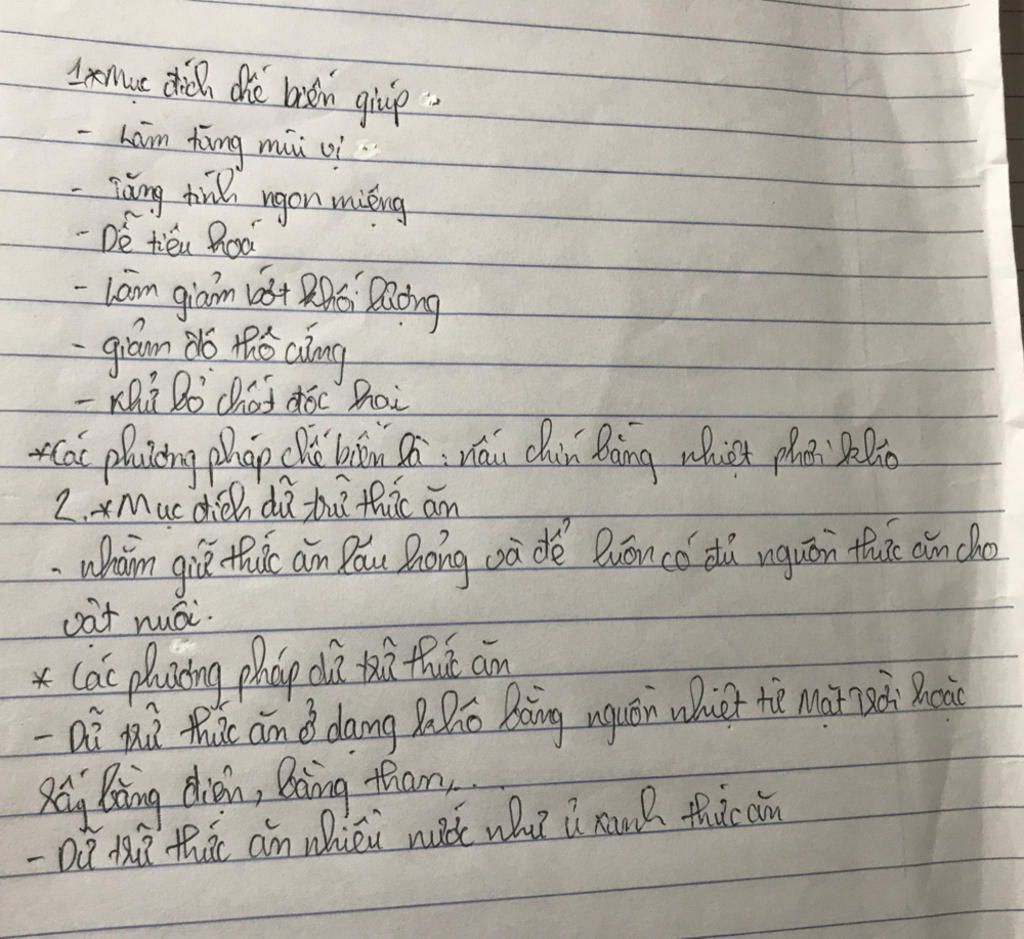 1*Mục đích chế biến giúp
- Làm tăng mùi vị
- Tăng tính ngon miệng
- Dễ tiêu hoá
- Làm giảm bớt khối lượng
- giảm độ thô cứng
- Khử bỏ chất độc hại
*Các phương pháp chế biến là : nấu chín bằng nhiệt phơi khô
2.*Mục đích dữ trữ thức ăn
- nhằm giữ thức ăn lâu hỏng và để luôn có đủ nguồn thức ăn cho
vật nuôi.
* Các phương pháp dữ trữ thức ăn
- Dữ trữ thức ăn ở dạng khô bằng nguồn nhiệt từ Mặt Trời hoặc
sấy bằng điện, bằng than,...
- Dữ trữ thức ăn nhiều nước như ủ xanh thức ăn